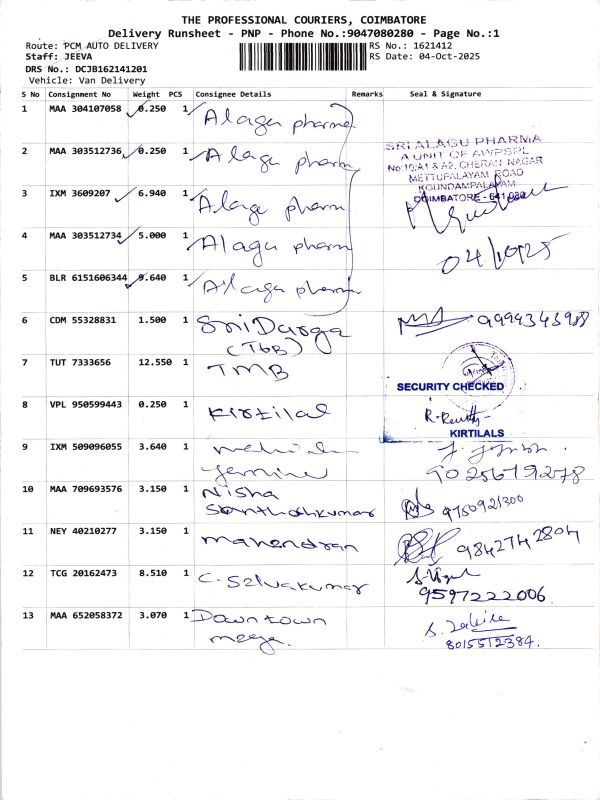 THE PROFESSIONAL COURIERS, COIMBATORE
Delivery Runsheet - PNP - Phone No.:9047080280 - Page No.:1
Route: PCM AUTO DELIVERY RS No.: 1621412
Staff: JEEVA RS Date: 04-Oct-2025
DRS No.: DCJB162141201
Vehicle: Van Delivery
S No Consignment No Weight PCS Consignee Details Remarks Seal & Signature
1 MAA 304107058 0.250 1 Alagu pharma
2 MAA 303512736 0.250 1 Alagu pharma
SRI ALAGU PHARMA
A UNIT OF AWPSPL
No:10/A1 & A2, CHERAN NAGAR
METTUPALAYAM ROAD
KOUNDAMPALAYAM
COIMBATORE - 641 030
3 IXM 3609207 6.940 1 Alagu pharm
4 MAA 303512734 5.000 1 Alagu pharm
04/10/25
5 BLR 6151606344 9.640 1 Alagu pharma
6 CDM 55328831 1.500 1 Sri Durga
(TBB)
9994343988
7 TUT 7333656 12.550 1 TMB
SECURITY CHECKED
8 VPL 950599443 0.250 1 Kirtilal
KIRTILALS
9 IXM 509096055 3.640 1
10 MAA 709693576 3.150 1 Nisha
Santhoshkumar
9750921300
11 NEY 40210277 3.150 1 Mahendran
9842742804
12 TCG 20162473 8.510 1 C. Selvakumar
9597222006
13 MAA 652058372 3.070 1 Downtown
8015512384.